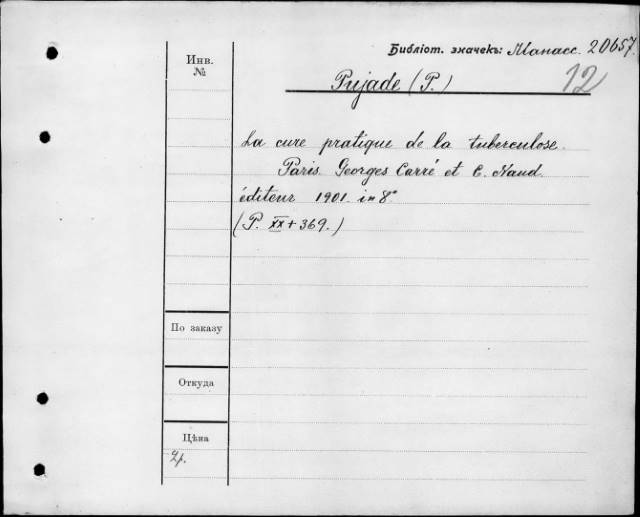 Библіот. значекъ: Манасс. 20657.
12
Инв.
№
Pujade (P.)
La cure pratique de la tuberculose.
Paris. Georges Carré et C. Naud
éditeur 1901. in 8°
(P. XX + 369.)
По заказу
Откуда
Цѣна